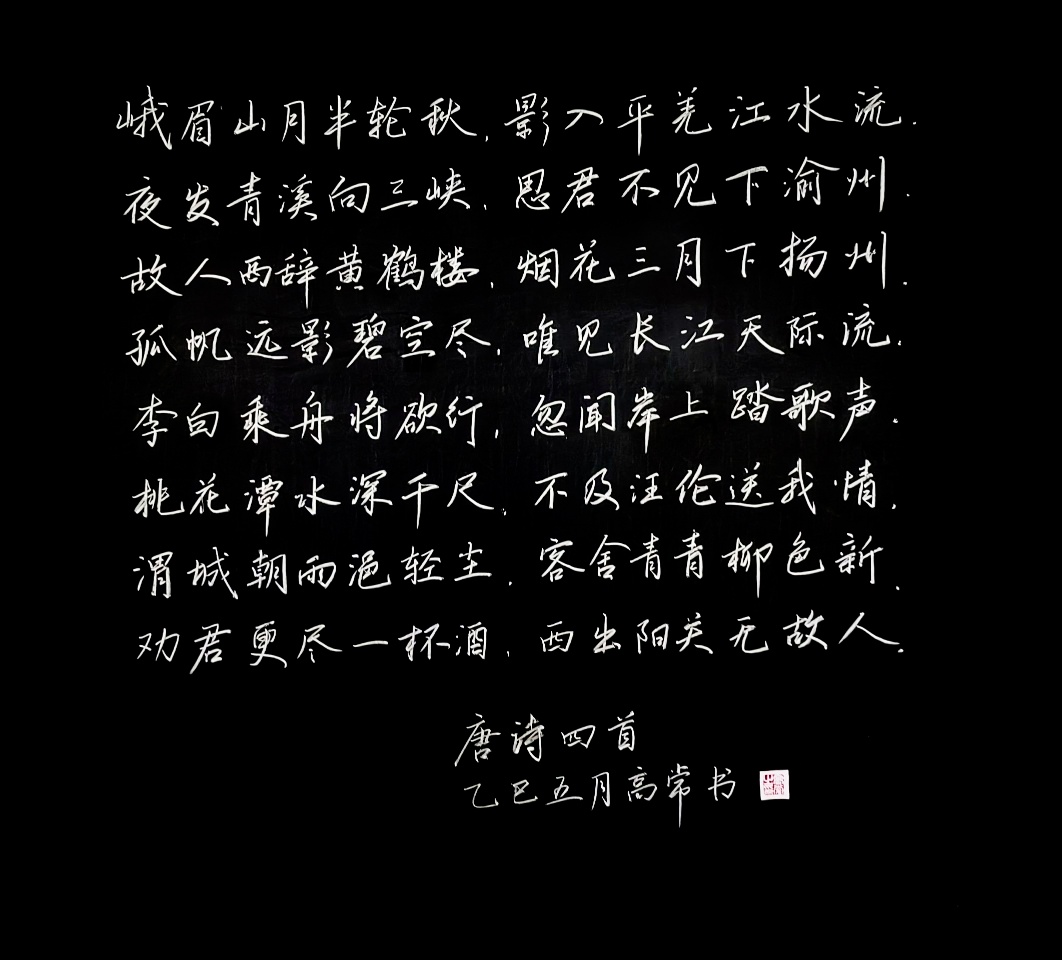 峨眉山月半轮秋.影入平羌江水流.
夜发青溪向三峡.思君不见下渝州.
故人西辞黄鹤楼.烟花三月下扬州.
孤帆远影碧空尽.唯见长江天际流.
李白乘舟将欲行.忽闻岸上踏歌声.
桃花潭水深千尺.不及汪伦送我情.
渭城朝雨浥轻尘.客舍青青柳色新.
劝君更尽一杯酒.西出阳关无故人.
唐诗四首
乙巳五月高常书